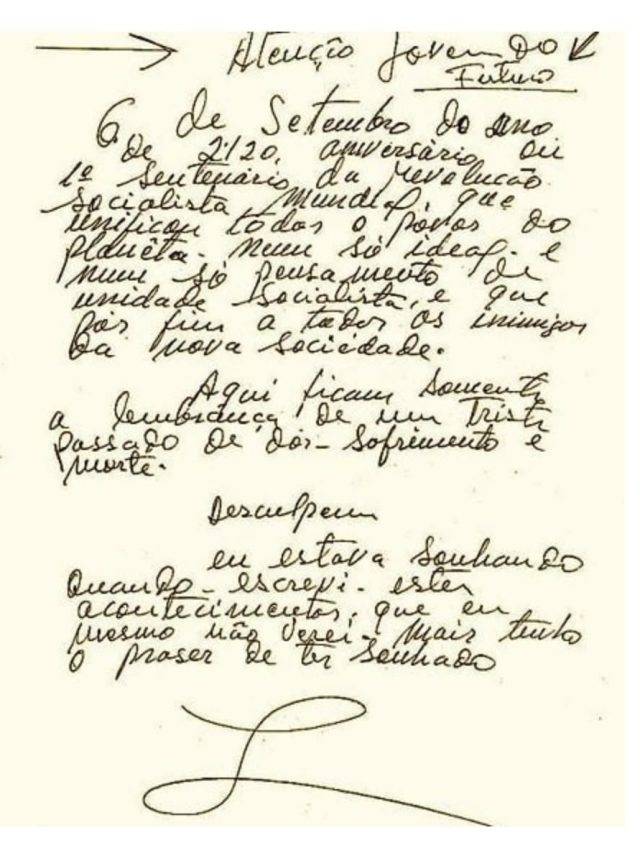 Atenção Jovem do
Futuro
6 de Setembro do ano
de 2120, aniversário ou
1º Sentenário da revolução
Socialista Mundial, que
unificou todos o povos do
planêta. num só ideal. e
num só pensamento de
unidade Socialista, e que
pôs fim a todos os inimigos
da nova sociedade.
Aqui ficam somente
a lembrança de um triste
passado de dôr_ sofrimento e
morte.
Desculpem
eu estava sonhando
quando_ escrevi_ estes
acontecimentos, que eu
mesmo não verei_ mais tenho
o praser de ter sonhado